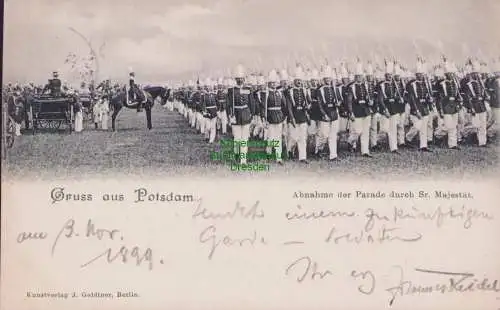 Dresden
Gruss aus Potsdam
Abnahme der Parade durch Sr. Majestät.
am 3. Nov.
1899.
sendet einem zukünftigen
Garde – Soldaten
Ihr
Kunstverlag J. Goldiner, Berlin.